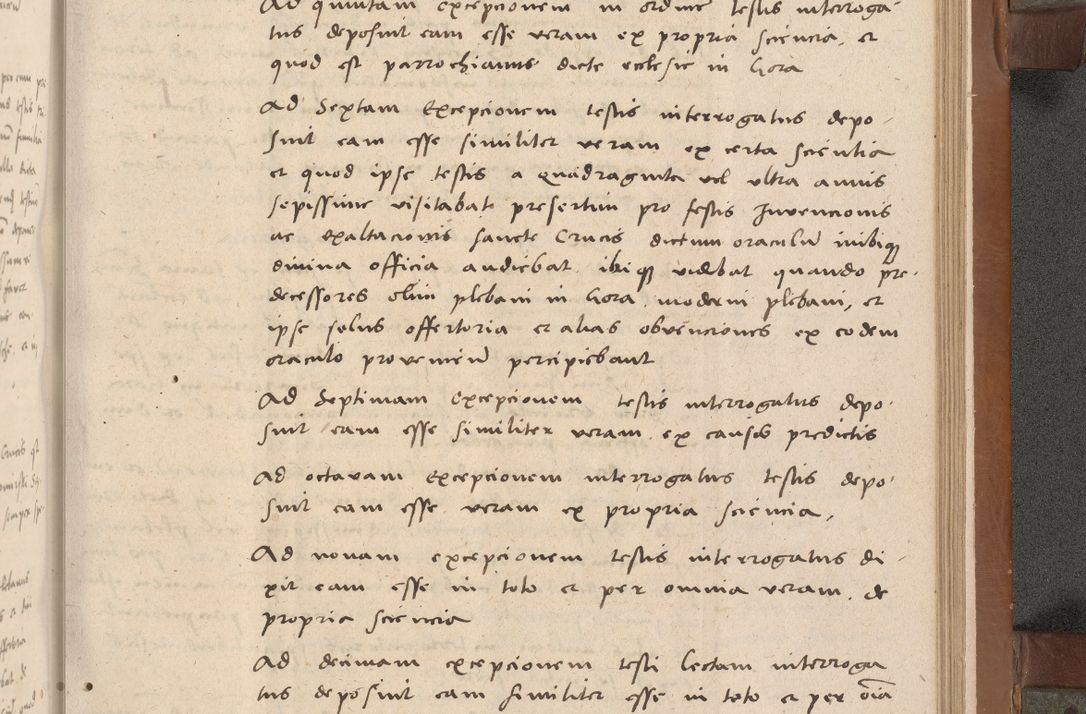 Ad quintam excepcionem in ordine testis interroga-
tus deposuit eam esse veram ex propria sciencia, et
quod est parrochianus dicte ecclesie in Gora
Ad Sextam Excepcionem testis interrogatus depo-
suit eam esse similiter veram ex certa scientia
et quod ipse testis a quadraginta vel ultra annis
sepissime visitabat presertim pro festis Invencionis
ac exaltacionis sancte Crucis dictum oraculū inibiqꝫ
divina officia audiebat ibiqꝫ videbat quando pre-
decessores olim plebani in Gora moderni plebani, et
ipse solus offertoria et alias obvenciones ex eodem
oraculo proveniēn percipiebant
Ad Septimam Excepcionem testis interrogatus depo-
suit eam esse similiter veram ex causis predictis
Ad octavam Excepcionem interrogatus testis depo-
suit eam esse veram ex propria sciencia,
Ad nonam excepcionem testis interrogatus di-
xit eam esse in toto et per omnia veram de
propria sciencia
Ad decimam excepcionem testi lectam interroga
tus deposuit eam similiter esse in toto et per oīa